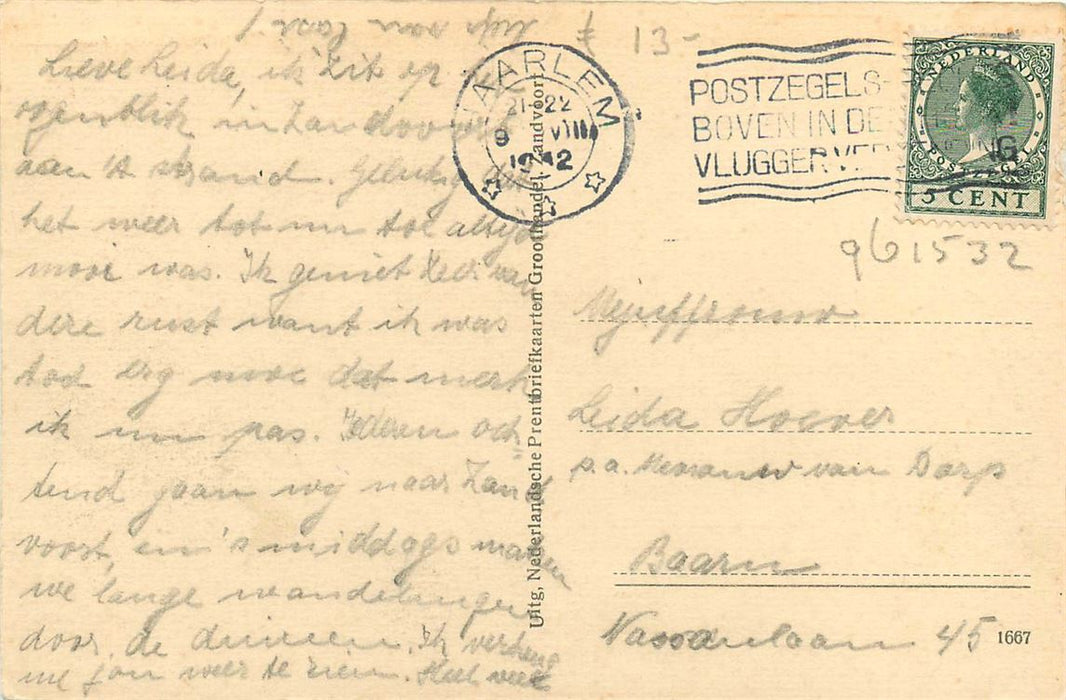 Lieve Leida, ik zit op het
ogenblik in Zandvoort
aan 't strand. Gelukkig dat
het weer tot nu toe altijd
mooi was. Ik geniet van
deze rust want ik was
toch erg moe dat merk
ik nu pas. Iederen och
tend gaan wij naar Zand
voort, en 's middags maken
we lange wandelingen
door de duinen. Ik verlang
me jou weer te zien. Heel veel
liefs van
£ 13-
HAARLEM
21-22
9 VIII
1942
POSTZEGELS
BOVEN IN DE
VLUGGER
NEDERLAND
POSTZEGEL
5 CENT
961532
Mejuffrouw
Leida Hoever
p.a. Mevrouw van Dorp
Baarn
Nassaulaan 45
1667
Uitg, Nederlandsche Prentbriefkaarten Groothandel, Zandvoort